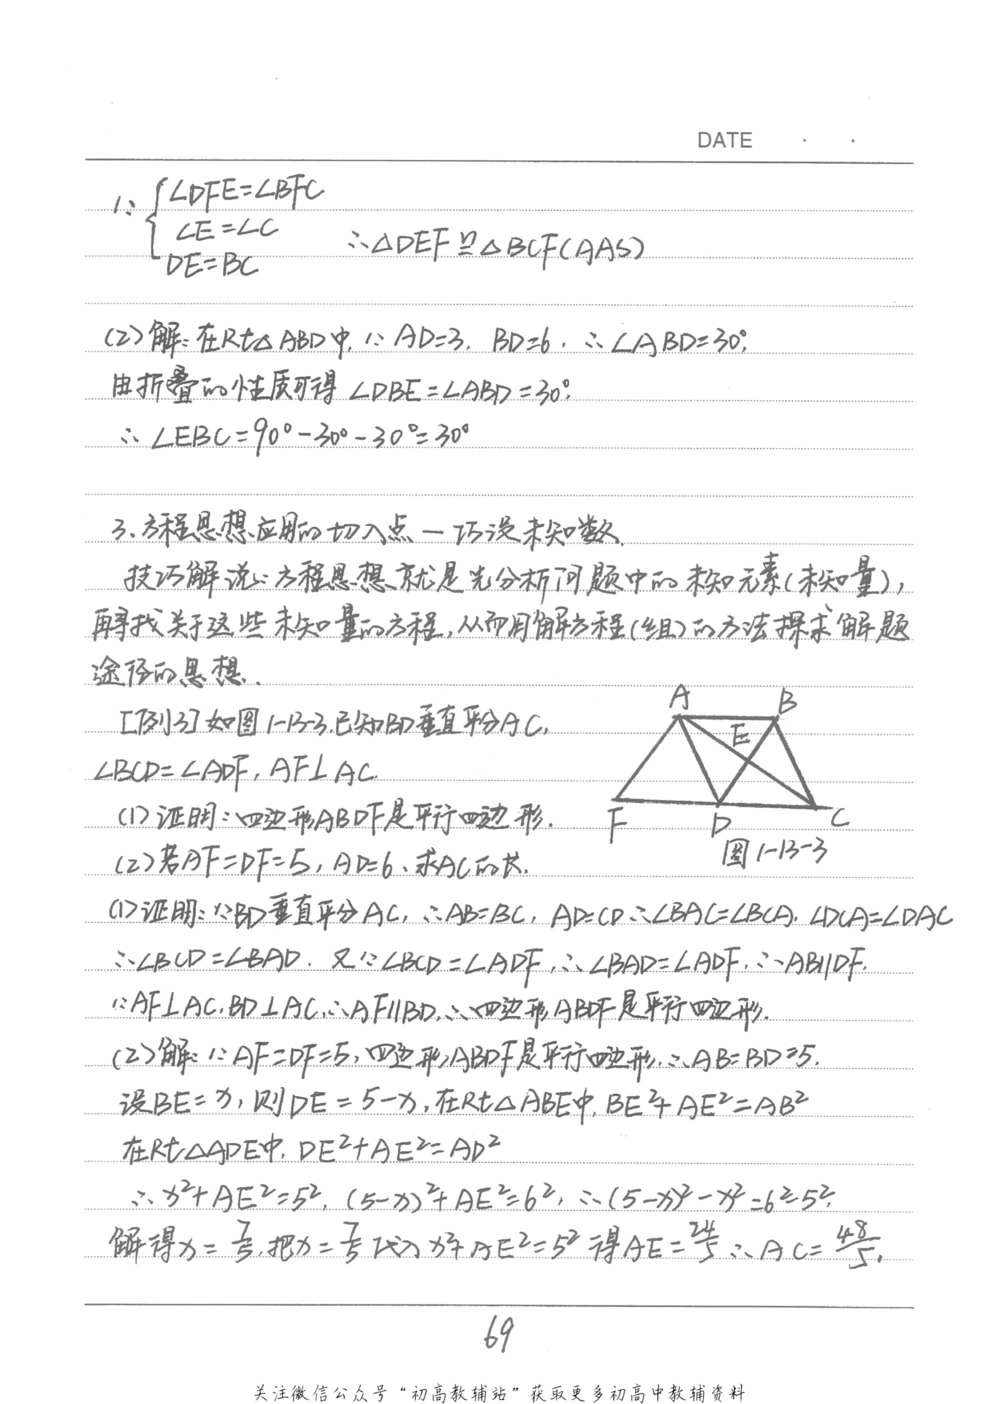 DATE · ·
∵ { ∠DFE=∠BFC
∠E=∠C
DE=BC
∴△DEF≌△BCF(AAS)
(2)解:在Rt△ABD中,∵AD=3, BD=6, ∴∠ABD=30°,
由折叠的性质可得∠DBE=∠ABD=30°,
∴∠EBC=90°-30°-30°=30°
3、方程思想应用的切入点—巧设未知数.
技巧解说:方程思想就是先分析问题中的未知元素(未知量),
再寻找关于这些未知量的方程,从而用解方程(组)的方法探求解题
途径的思想.
[例3]如图1-13-3,已知BD垂直平分AC,
∠BCD=∠ADF, AF⊥AC.
(1)证明:四边形ABDF是平行四边形.
(2)若AF=DF=5, AD=6,求AC的长.
A B
E
F D C
图1-13-3
(1)证明:∵BD垂直平分AC, ∴AB=BC, AD=CD∴∠BAC=∠BCA, ∠DCA=∠DAC
∴∠BCD=∠BAD. 又∵∠BCD=∠ADF,∴∠BAD=∠ADF,∴AB∥DF.
∵AF⊥AC,BD⊥AC,∴AF∥BD,∴四边形ABDF是平行四边形.
(2)解:∵AF=DF=5,四边形ABDF是平行四边形,∴AB=BD=5.
设BE=x,则DE=5-x,在Rt△ABE中, BE²+AE²=AB²
在Rt△ADE中, DE²+AE²=AD²
∴x²+AE²=5², (5-x)²+AE²=6², ∴(5-x)²-x²=6²-5²,
解得x=7/5,把x=7/5代入x²+AE²=5²得AE=24/5∴AC=48/5.
69
关注微信公众号“初高教辅站”获取更多初高中教辅资料